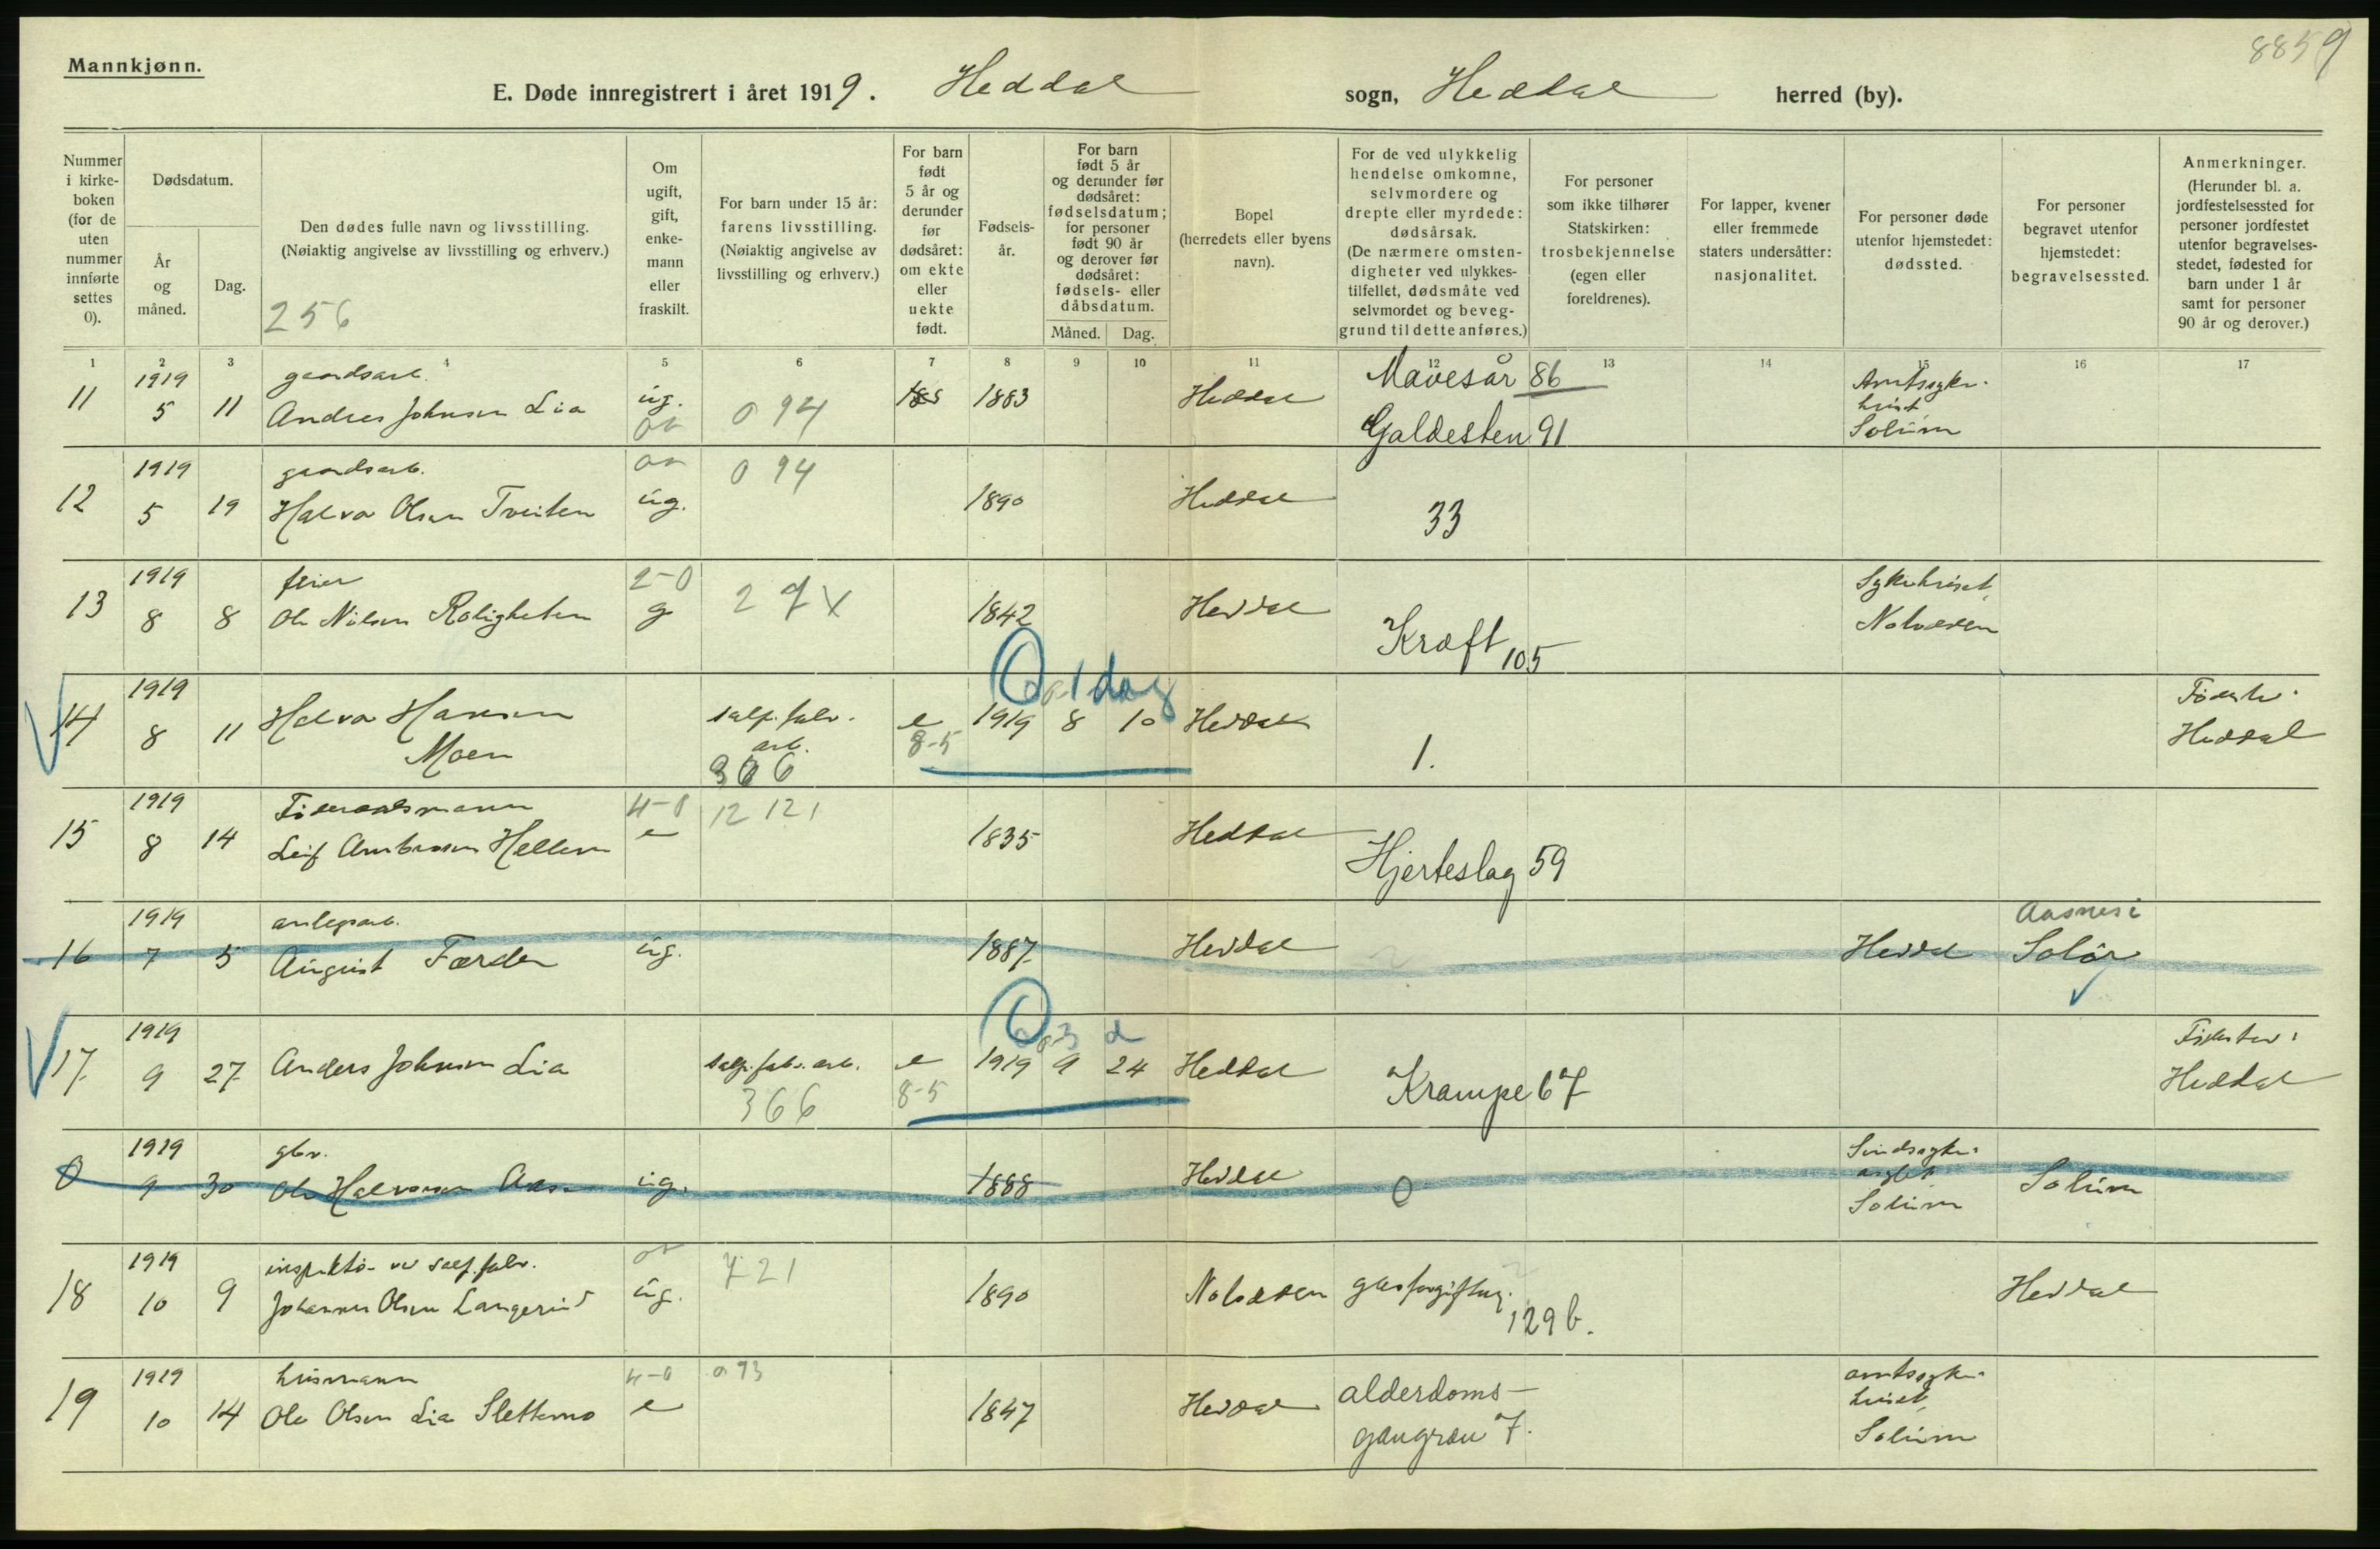 8859
Mannkjønn.
E. Døde innregistrert i året 1919. Heddal sogn, Heddal herred (by).
Nummer i kirke-boken (for de uten nummer innførte settes 0).
Dødsdatum.
År og måned.
Dag.
Den dødes fulle navn og livsstilling.
(Nøiaktig angivelse av livsstilling og erhverv.)
256
Om ugift, gift, enke-mann eller fraskilt.
For barn under 15 år: farens livsstilling. (Nøiaktig angivelse av livsstilling og erhverv.)
For barn født 5 år og derunder før dødsåret: om ekte eller uekte født.
Fødsels-år.
For barn født 5 år og derunder før dødsåret: fødselsdatum; for personer født 90 år og derover før dødsåret: fødsels- eller dåbsdatum.
Måned. Dag.
Bopel (herredets eller byens navn).
For de ved ulykkelig hendelse omkomne, selvmordere og drepte eller myrdede: dødsårsak. (De nærmere omsten-digheter ved ulykkes-tilfellet, dødsmåte ved selvmordet og beveg-grund til dette anføres.)
For personer som ikke tilhører Statskirken: trosbekjennelse (egen eller foreldrenes).
For lapper, kvener eller fremmede staters undersåtter: nasjonalitet.
For personer døde utenfor hjemstedet: dødssted.
For personer begravet utenfor hjemstedet: begravelsessted.
Anmerkninger. (Herunder bl. a. jordfestelsessted for personer jordfestet utenfor begravelses-stedet, fødested for barn under 1 år samt for personer 90 år og derover.)
1 2 3 4 5 6 7 8 9 10 11 12 13 14 15 16 17
1919 gaardsarb. Mavesår 86 Amtssyke-
11 5 11 Andres Johnsen Lia ug. 0 94 1883 Heddal huset
Galdesten 91 Solum
1919 gaardsarb. 0 94
12 5 19 Halvor Olsen Tveiten ug. 1890 Heddal 33
1919 feier 2-0 Sykehuset,
13 8 8 Ole Nilsen Roligheten g 27 x 1842 Heddal Notodden
Kræft 105
1 dag
1919 Fødested:
14 8 11 Halvor Hansen salp. fabr. e 1919 8 10 Heddal Heddal
Moen arb. 8-5 1.
366
1919 Føderaadsmann 4-0 12 121
15 8 14 Leif Ambrosen Hellem e 1835 Heddal
Hjerteslag 59
1919 anlegsarb. Aasnes i
16 7 5 August Færder ug. 1887 Heddal Heddal Solør
3 d
1919 Fødested:
17 9 27 Anders Johnsen Lia salp. fabr. arb. e 1919 9 24 Heddal Heddal
366 8-5 Krampe 67
1919 gbr. Sindssyke-
0 9 30 Ole Halvorsen Aas ug. 1888 Heddal 0 asylet Solum
Solum
1919 inspektør ved salp. fabr. 721
18 10 9 Johannes Olsen Langerud ug. 1890 Notodden gasforgiftng. Heddal
129 b.
1919 husmann 4-0 0 93 alderdoms- amtssyke-
19 10 14 Ole Olsen Lia Slettemo e 1847 Heddal huset,
gangræn 7. Solum